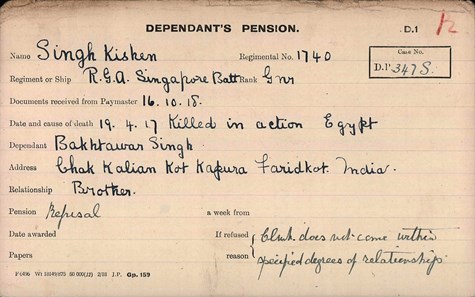 DEPENDANT'S PENSION. D.1 12
Name Singh Kishen Regimental No. 1740
Case No.
D.P. 347 S.
Regiment or Ship R.G.A. Singapore Batt Rank Gnr
Documents received from Paymaster 16.10.18.
Date and cause of death 19.4.17 Killed in action Egypt
Dependant Bakhtawar Singh
Address Chak Kalian Kot Kapura Faridkot. India.
Relationship Brother.
Pension Refusal a week from
Date awarded If refused Clmt does not come within
Papers reason specified degrees of relationship
2/18 J.P. Gp. 159